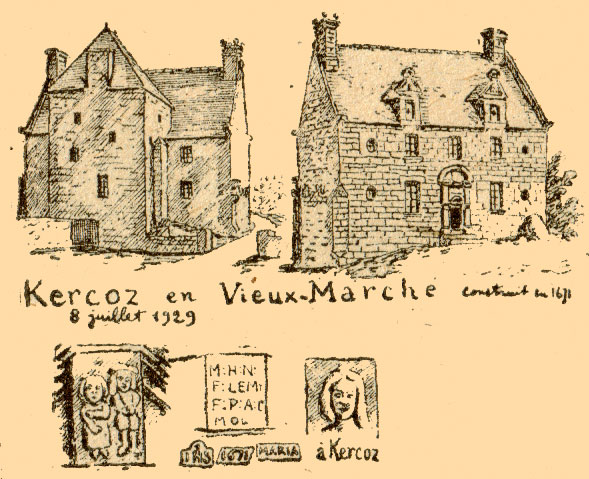 Kercoz en Vieux-Marche construit en 1671
8 juillet 1929
M:H:N:
F:LEM:
F:P:A:C
MOL
IHS 1671 MARIA
à Kercoz